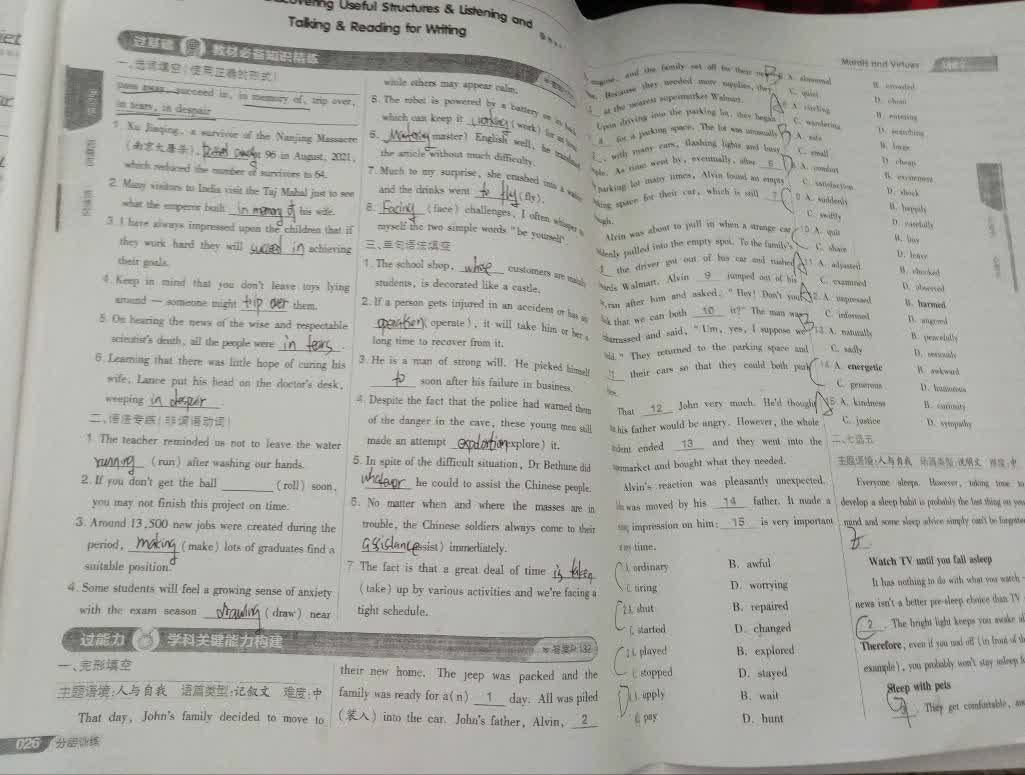 Discovering Useful Structures & Listening and
Talking & Reading for Writing
过基础 教材必备知识精练
一、选词填空(使用正确的形式)
pass away, succeed in, in memory of, trip over,
in tears, in despair
1. Xu Jiaqing, a survivor of the Nanjing Massacre
(南京大屠杀), passed away at 96 in August, 2021,
which reduced the number of survivors to 64.
2. Many visitors to India visit the Taj Mahal just to see
what the emperor built in memory of his wife.
3. I have always impressed upon the children that if
they work hard they will succeed in achieving
their goals.
4. Keep in mind that you don't leave toys lying
around — someone might trip over them.
5. On hearing the news of the wise and respectable
scientist's death, all the people were in tears.
6. Learning that there was little hope of curing his
wife, Lance put his head on the doctor's desk,
weeping in despair.
二、语法专练(非谓语动词)
1. The teacher reminded us not to leave the water
running (run) after washing our hands.
2. If you don't get the ball ______ (roll) soon,
you may not finish this project on time.
3. Around 13,500 new jobs were created during the
period, making (make) lots of graduates find a
suitable position.
4. Some students will feel a growing sense of anxiety
with the exam season drawing (draw) near
while others may appear calm.
5. The robot is powered by a battery on its back,
which can keep it working (work) for
6. Mastering master) English well, he translated
the article without much difficulty.
7. Much to my surprise, she crashed into a waiter
and the drinks went to fly (fly).
8. Facing (face) challenges, I often whisper to
myself the two simple words "be yourself".
三、单句语法填空
1. The school shop, whose customers are mainly
students, is decorated like a castle.
2. If a person gets injured in an accident or has an
operation (operate), it will take him or her a
long time to recover from it.
3. He is a man of strong will. He picked himself
to soon after his failure in business.
4. Despite the fact that the police had warned them
of the danger in the cave, these young men still
made an attempt explore) it.
5. In spite of the difficult situation, Dr Bethune did
whatever he could to assist the Chinese people.
6. No matter when and where the masses are in
trouble, the Chinese soldiers always come to their
assistance (assist) immediately.
7. The fact is that a great deal of time is taken
(take) up by various activities and we're facing a
tight schedule.
过能力 学科关键能力构建
答案P.132
一、完形填空
主题语境:人与自我 语篇类型:记叙文 难度:中
That day, John's family decided to move to
their new home. The jeep was packed and the
family was ready for a(n) 1 day. All was piled
(装入) into the car. John's father, Alvin, 2
026 分层训练
Morals and Virtues
engine, and the family set off for their new
Because they needed more supplies, they
at the nearest supermarket Walmart.
Upon driving into the parking lot, they began
4 for a parking space. The lot was unusually
5, with many cars, flashing lights and busy
people. As time went by, eventually, after 6
parking lot many times, Alvin found an empty
parking space for their car, which is still 7
enough.
Alvin was about to pull in when a strange car
suddenly pulled into the empty spot. To the family's
8 the driver got out of his car and rushed
towards Walmart. Alvin 9 jumped out of his
ran after him and asked, "Hey! Don't you
think that we can both 10 it?" The man was
embarrassed and said, "Um, yes, I suppose we
could." They returned to the parking space and
11 their cars so that they could both park
That 12 John very much. He'd thought
his father would be angry. However, the whole
incident ended 13 and they went into the
supermarket and bought what they needed.
Alvin's reaction was pleasantly unexpected.
was moved by his 14 father. It made a
strong impression on him: 15 is very important
time.
1. ordinary B. awful
C. tiring D. worrying
2. A. shut B. repaired
C. started D. changed
3. A. played B. explored
C. stopped D. stayed
4. A. apply B. wait
C. pay D. hunt
A. abnormal B. crowded
C. quiet D. clean
A. circling B. entering
C. wandering D. searching
A. safe B. large
C. small D. cheap
A. comfort B. excitement
C. satisfaction D. shock
9. A. suddenly B. happily
C. swiftly D. carefully
10. A. quit B. buy
C. share D. leave
11. A. adjusted B. checked
C. examined D. observed
12. A. impressed B. harmed
C. informed D. angered
13. A. naturally B. peacefully
C. sadly D. seriously
14. A. energetic B. awkward
C. generous D. humorous
15. A. kindness B. curiosity
C. justice D. sympathy
二、七选五
主题语境:人与自我 语篇类型:说明文 难度:中
Everyone sleeps. However, taking time to
develop a sleep habit is probably the last thing on your
mind and some sleep advice simply can't be forgotten
Watch TV until you fall asleep
It has nothing to do with what you watch
news isn't a better pre-sleep choice than TV
2. The bright light keeps you awake
Therefore, even if you nod off (in front of the
example), you probably won't stay asleep
Sleep with pets
3. They get comfortable, and